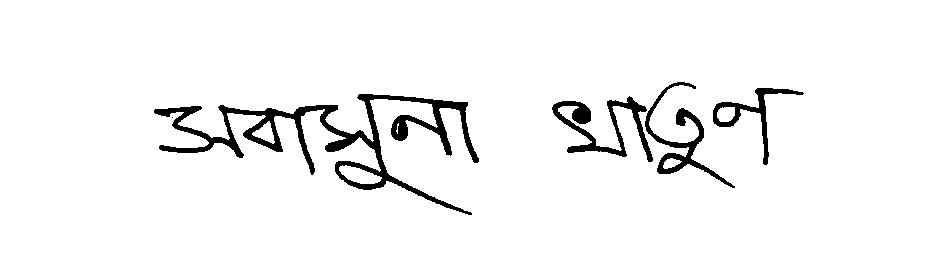 জবাসুনা খাতুন